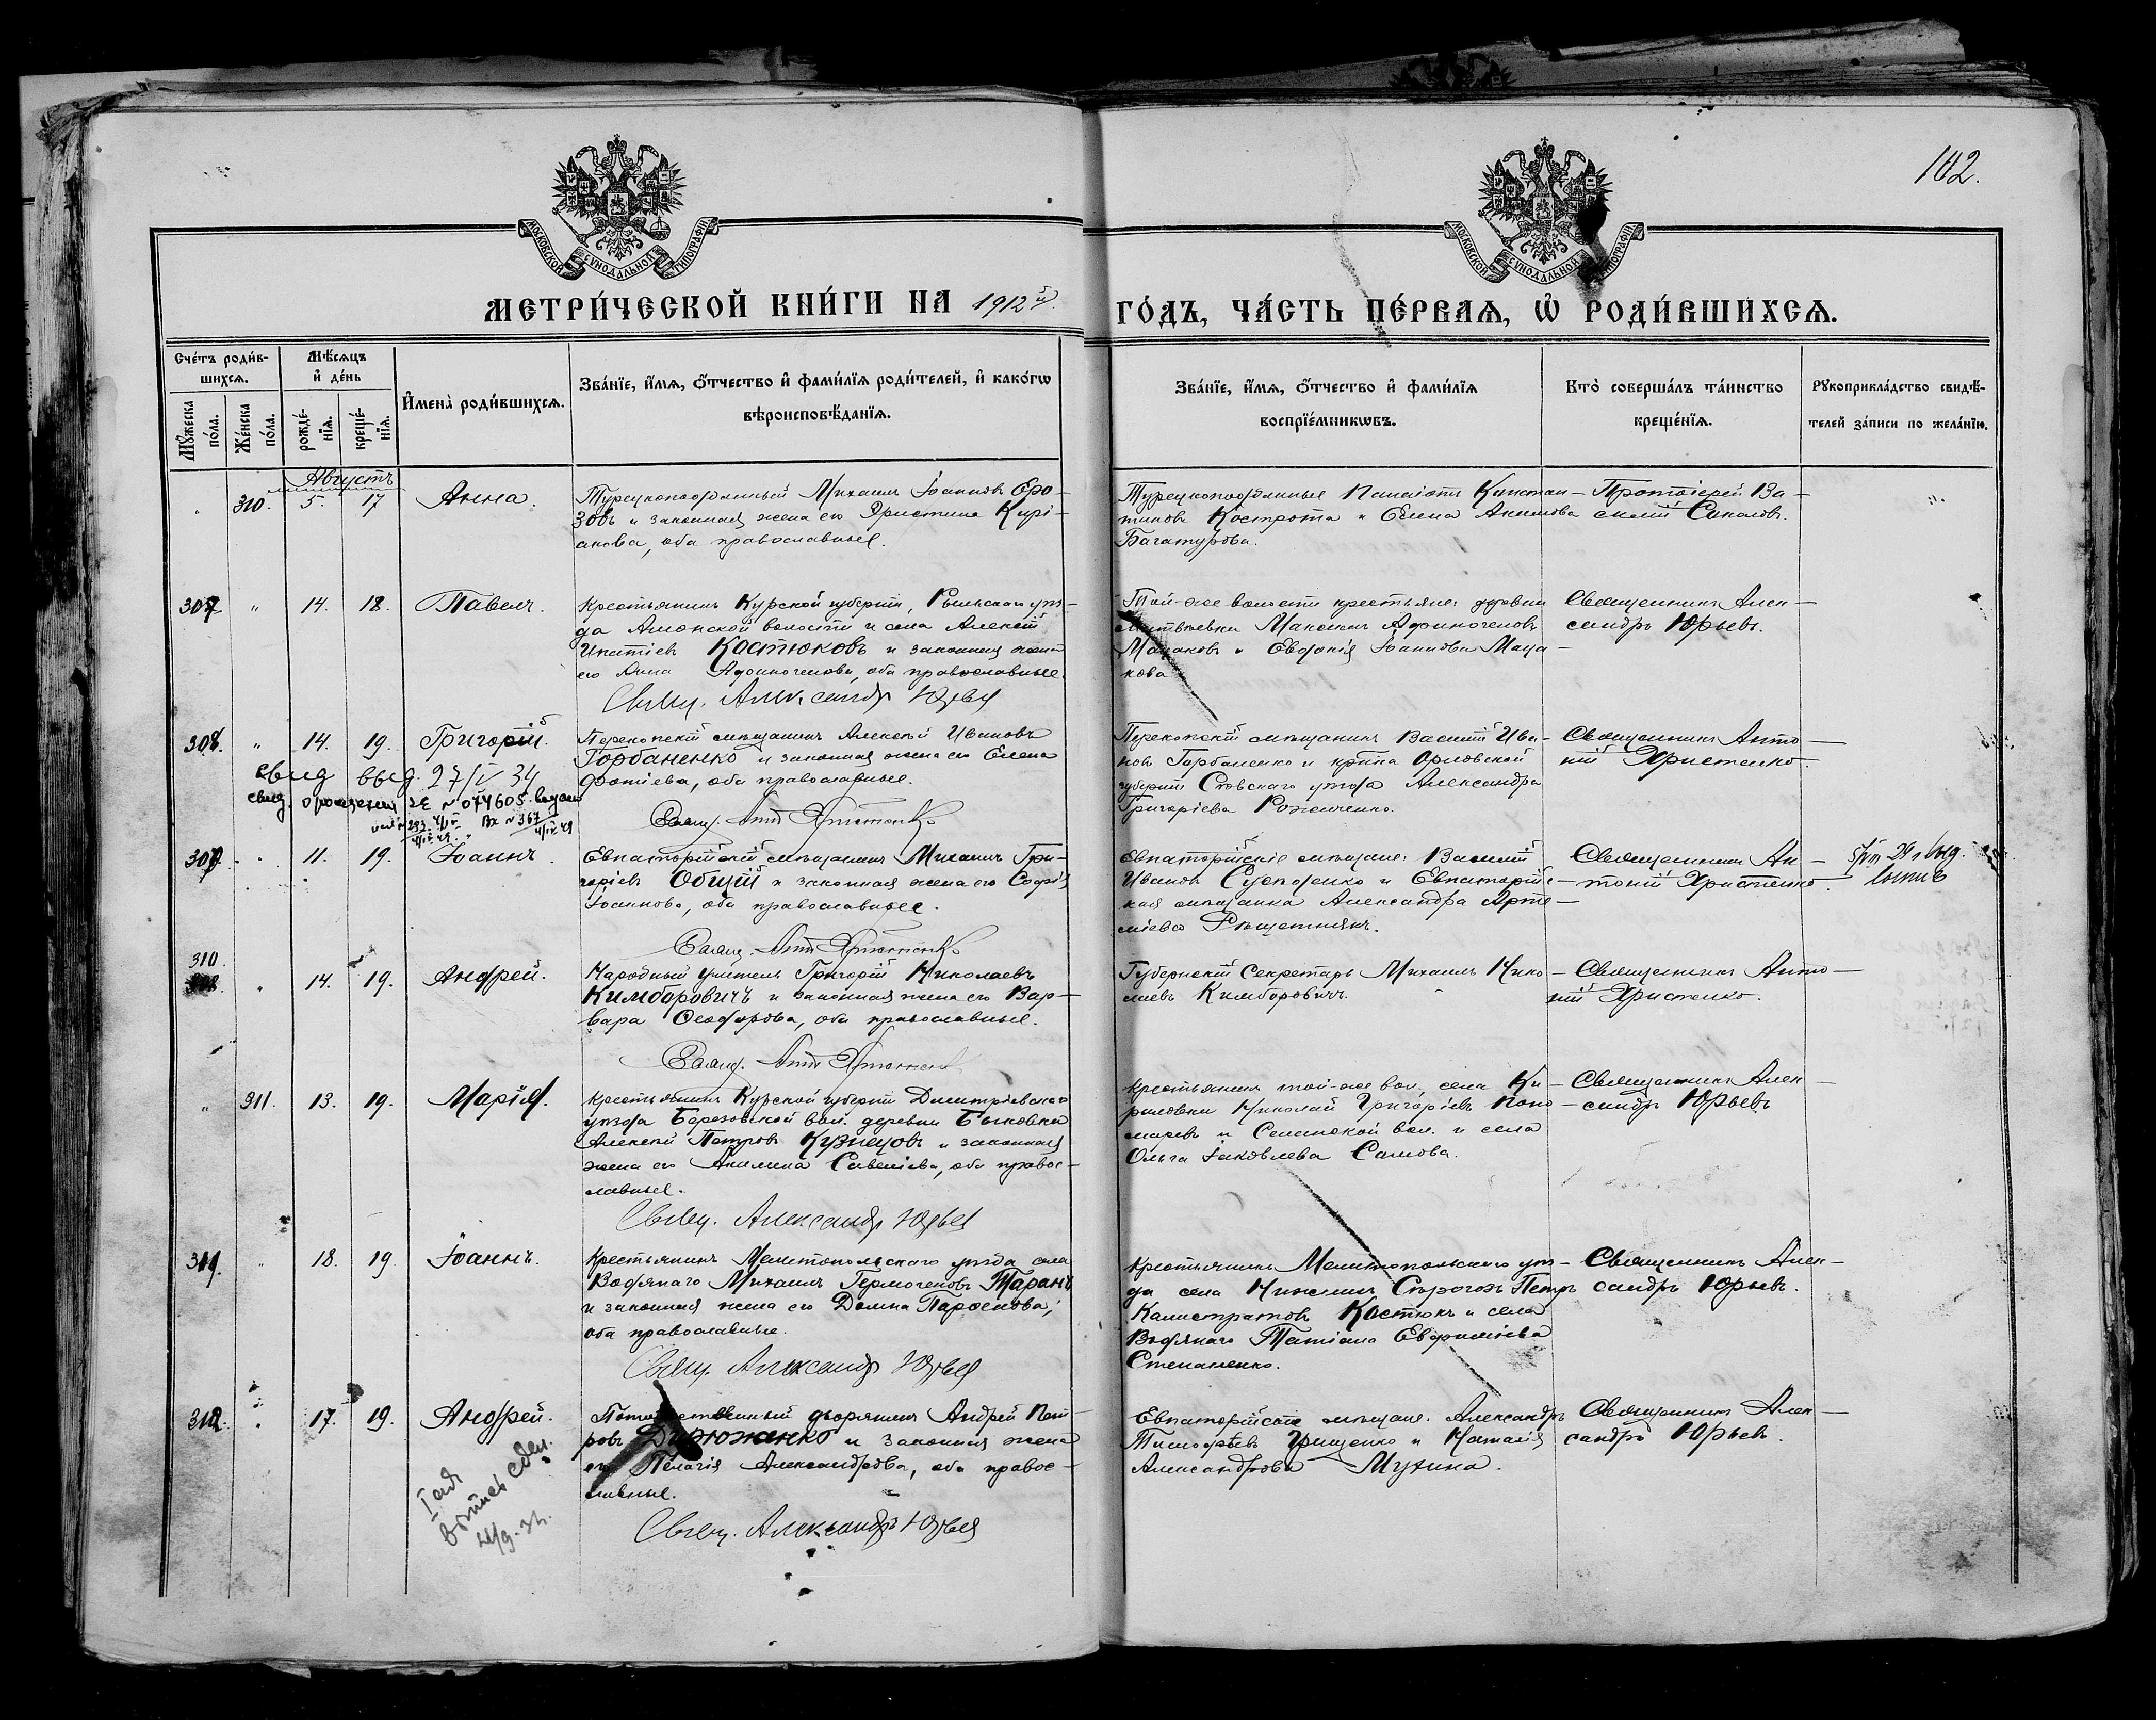 102.
МОСКОВСКОЙ СУНОДАЛЬНОЙ ТИПОГРАФІИ
МОСКОВСКОЙ СУНОДАЛЬНОЙ ТИПОГРАФІИ
МЕТРИ́ЧЕСКОЙ КНИ́ГИ НА 1912й
ГО́ДЪ, ЧА́СТЬ ПЕ́РВАЯ, Ѽ РОДИ́ВШИХСЯ.
Сче́тъ роди́в-
шихся.
Мѣ́сяцъ
и҆ де́нь
Мꙋ́жеска по́ла.
Же́нска по́ла.
рожде́-
нїя.
креще́-
нїя.
И҆мена̀ роди́вшихся.
Зва́нїе, и҆́мя, ѻ҆́тчество и҆ фами́лїя роди́телей, и҆ како́гѡ
вѣроисповѣ́данїя.
Зва́нїе, и҆́мя, ѻ҆́тчество и҆ фами́лїя
воспрїе́мникѡвъ.
Кто̀ соверша́лъ та́инство
креще́нїя.
Рꙋкоприкла́дство свидѣ́-
телей за́писи по жела́нїю.
Августъ
310. 5. 17 Анна.
Турецкоподданный Михаилъ Іоанновъ Еро-
зовъ и законная жена его Христина Кирі-
акова, оба православные.
Турецкоподданные Панаіотъ Констан-
тиновъ Кострота и Елена Акимова
Багатурова.
Протоіерей Ва-
силій Соколовъ.
307 " 14. 18. Павелъ.
Крестьянинъ Курской губерніи, Рыльскаго уѣз-
да Амонской волости и села Алексій
Ипатіевъ Костюковъ и законная жена
его Анна Афиногенова, оба православные.
Свящ. Александръ Юрьевъ
Той-же волости крестьяне деревни
Максимъ Афиногеновъ
и Евдокія Іоаннова Маца-
кова
Священникъ Алек-
сандръ Юрьевъ.
308. " 14. 19. Григорій.
свид выд. 27/V 34
свид. о рождении № 074605 выдано
Перекопскій мѣщанинъ Алексій Ивановъ
Горбаненко и законная жена его Елена
Фотіева, оба православные.
Свящ. Ант. Христенко
Перекопскій мѣщанинъ Василій Ива-
новъ Горбаненко и кр-нка Орловской
губерніи Сѣвскаго уѣзда Александра
Григоріева
Священникъ Анто-
ній Христенко.
309. " 11. 19. Іоаннъ.
Евпаторійскій мѣщанинъ Михаилъ Гри-
горіевъ Общій и законная жена его Софія
Іоаннова, оба православные.
Свящ. Ант. Христенко
Евпаторійскіе мѣщане: Василій
Ивановъ и Евпаторійс-
кая мѣщанка Александра Арте-
міева Рѣшетнякъ.
Священникъ Ан-
тоній Христенко.
310.
" 14. 19. Андрей.
Народный учитель Григорій Николаевъ
Кимборовичъ и законная жена его Вар-
вара Ѳеодорова, оба православные.
Свящ. Ант. Христенко
Губернскій Секретарь Михаилъ Нико-
лаевъ Кимборовичъ.
Священникъ Анто-
ній Христенко.
" 311. 13. 19. Марія.
Крестьянинъ Курской губерніи Дмитріевскаго
уѣзда Березовской вол. деревни Быковки
Алексій Петровъ Кузнецовъ и законная
жена его Акилина Савеліева, оба правос-
лавные.
Свящ. Александръ Юрьевъ
Крестьянинъ той-же вол. села Ки-
риловки Николай Григоріевъ Поно-
маревъ и вол. и села
Ольга Іаковлева
Священникъ Алек-
сандръ Юрьевъ
311. " 18. 19. Іоаннъ.
Крестьянинъ Мелитопольскаго уѣзда села
Водянаго Михаилъ Гермогеновъ Таранъ
и законная жена его Домна Парѳенова,
оба православные.
Свящ. Александръ Юрьевъ
Крестьянинъ Мелитопольскаго уѣз-
да села Нижнихъ Сѣрогозъ Петръ
Калистратовъ Костюкъ и села
Водянаго Татіана Евфиміева
Степаненко.
Священникъ Алек-
сандръ Юрьевъ.
312. " 17. 19. Андрей.
Потомственный дворянинъ Андрей Пет-
ровъ и законная жена
его Пелагія Александрова, оба правос-
лавные.
Свящ. Александръ Юрьевъ
Евпаторійскіе мѣщане: Александръ
Тимофѣевъ Грищенко и Наталія
Александрова Мухина.
Священникъ Алек-
сандръ Юрьевъ.